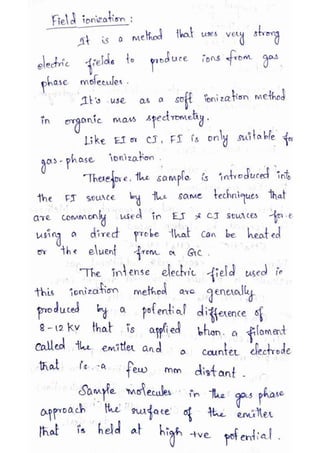 Field ionization :
It is a method that uses very strong
electric fields to produce ions from gas
phase molecules.
It's use as a soft ionization method
in organic mass spectrometry.
Like EI or CI, FI is only suitable for
gas-phase ionization.
Therefore, the sample is introduced into
the FI source by the same techniques that
are commonly used in EI & CI sources for e
using a direct probe that can be heated
or the eluent from a GC.
The intense electric field used in
this ionization method are generally
produced by a potential difference of
8-12 KV that is applied bhon. a filament
called the emitter and a counter electrode
that is a few mm distant.
Sample molecules in the gas phase
approach the surface of the emitter
that is held at high +ve potential.